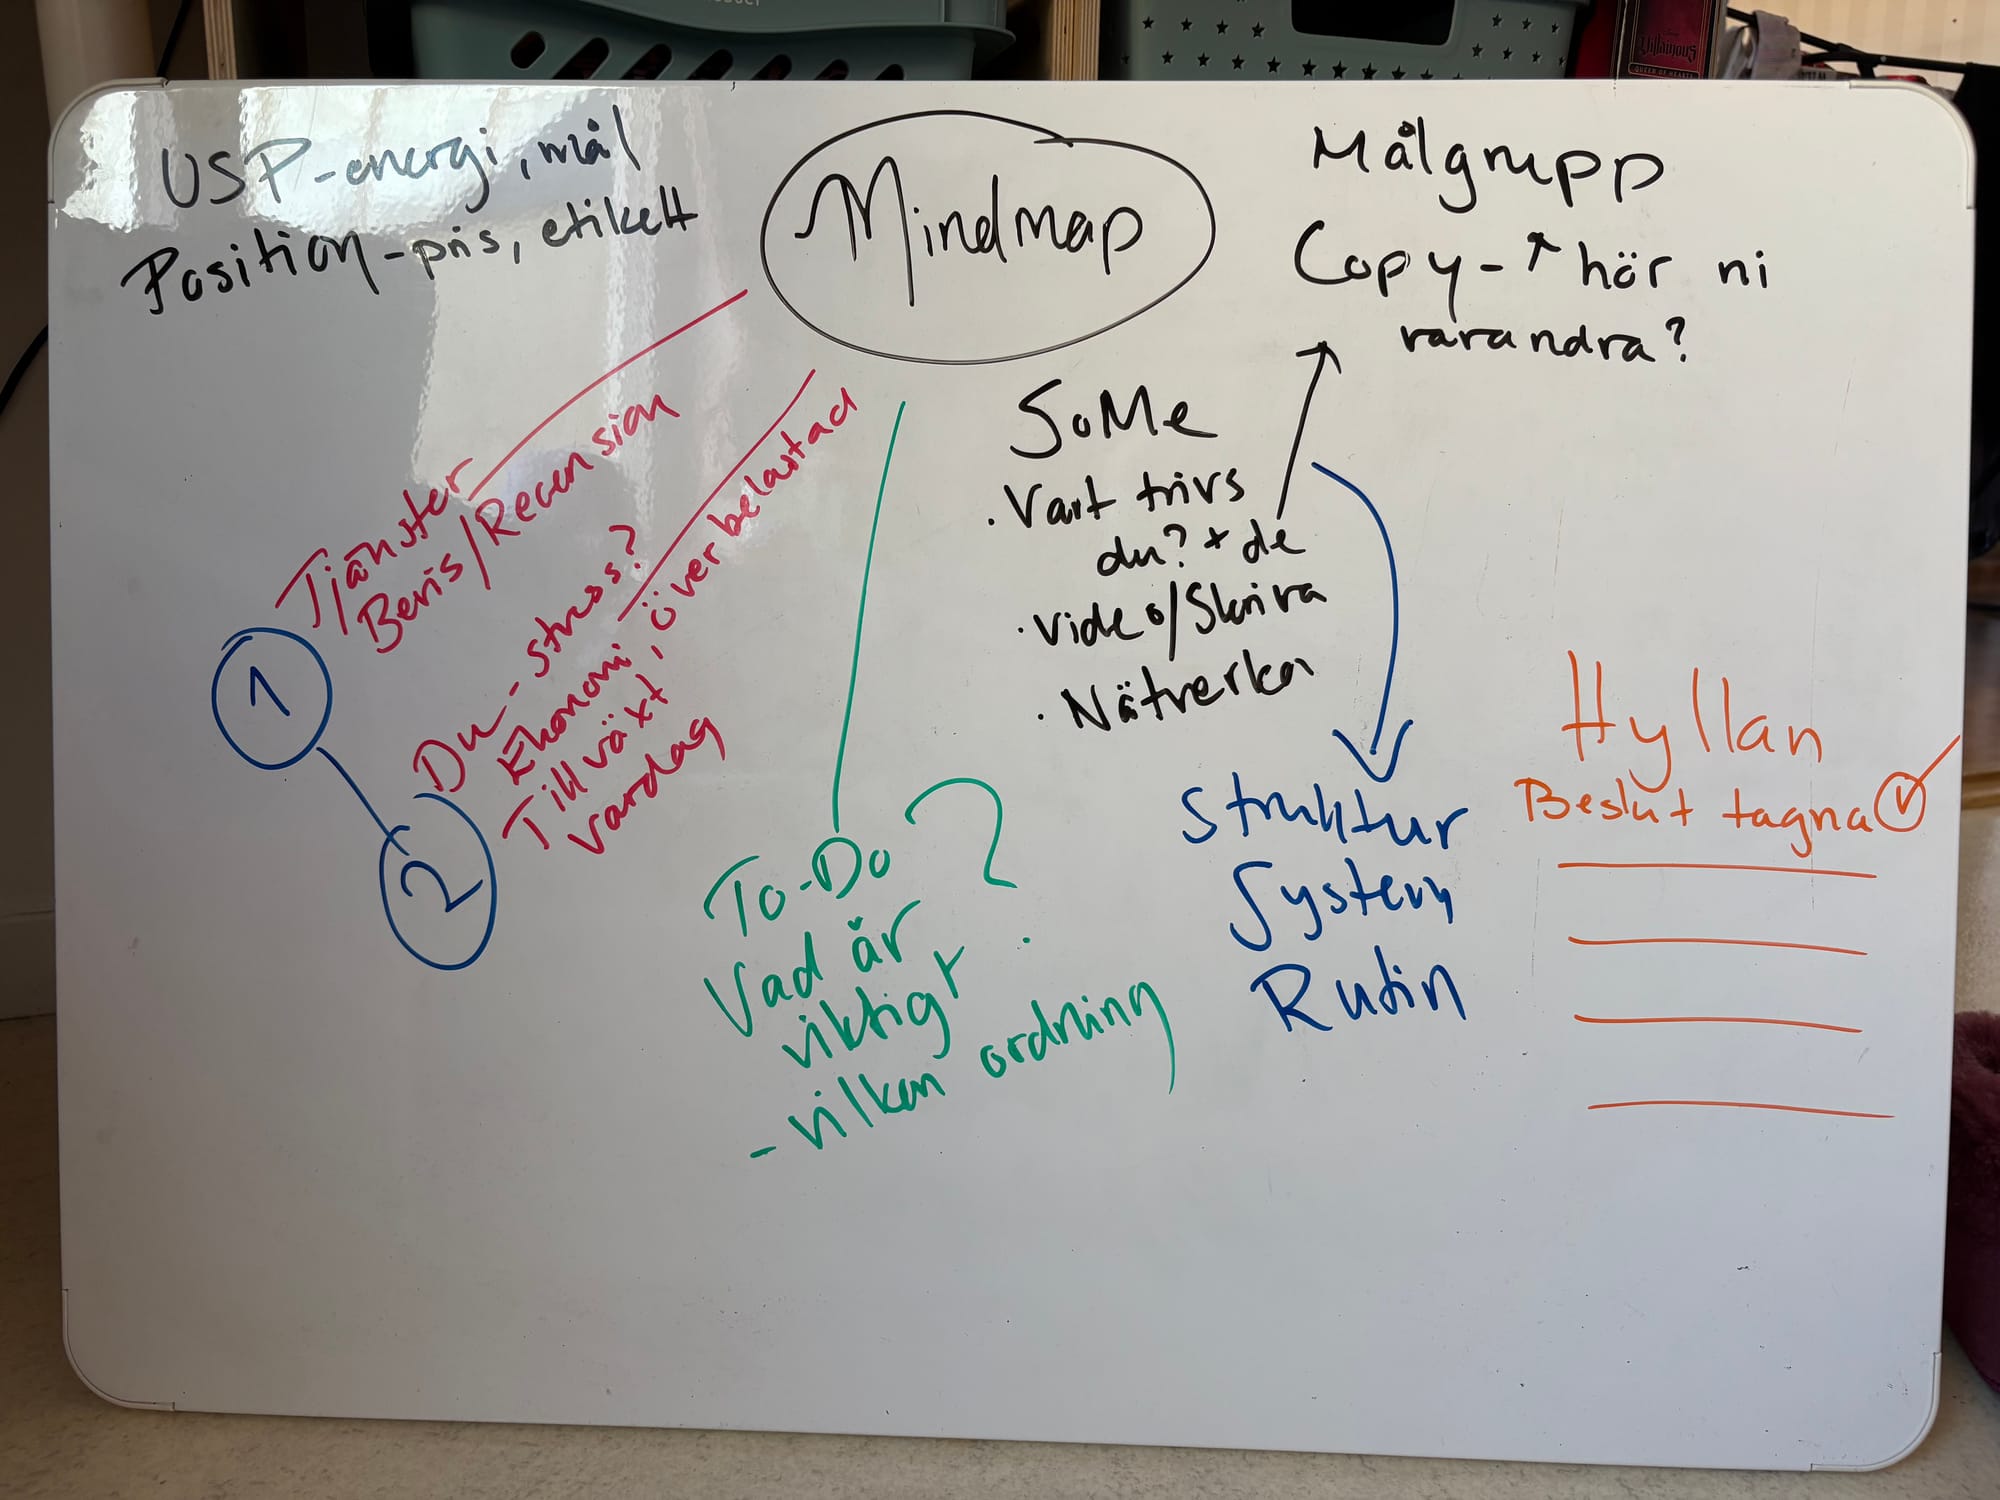 USP-energi, mål
Position-pris, etikett
Mindmap
Målgrupp
Copy-↑ hör ni
varandra?
SoMe
· Vart trivs
du? + de
· Video/Skriva
· Nätverka
Tjänster
Bevis/Recension
1
Du - stress?
Ekonomi, överbelastad
Tillväxt
vardag
2
To-Do ?
Vad är
viktigt
- vilken ordning
Struktur
System
Rutin
Hyllan
Beslut tagna ✓
Villainous
QUEEN OF HEARTS